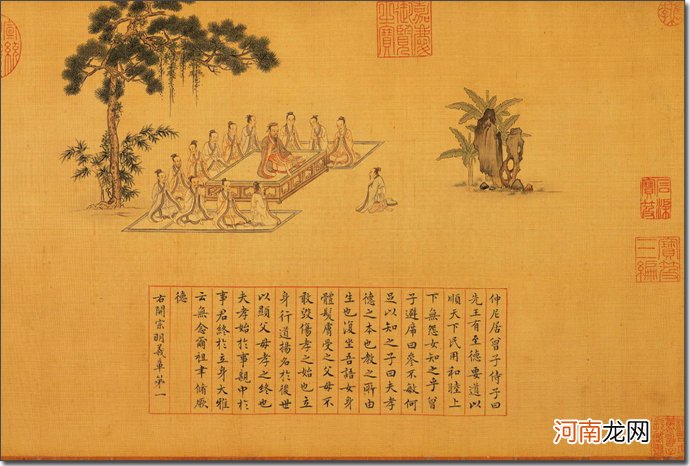 嘉慶御覽之寶
石渠寶笈
寶笈三編
仲尼居曾子侍子曰
先王有至德要道以
順天下民用和睦上
下無怨女知之乎曾
子避席曰參不敏何
足以知之子曰夫孝
德之本也教之所由
生也復坐吾語女身
體髮膚受之父母不
敢毀傷孝之始也立
身行道揚名於後世
以顯父母孝之終也
夫孝始於事親中於
事君終於立身大雅
云無念爾祖聿脩厥
德
右開宗明義章第一
河南龙网